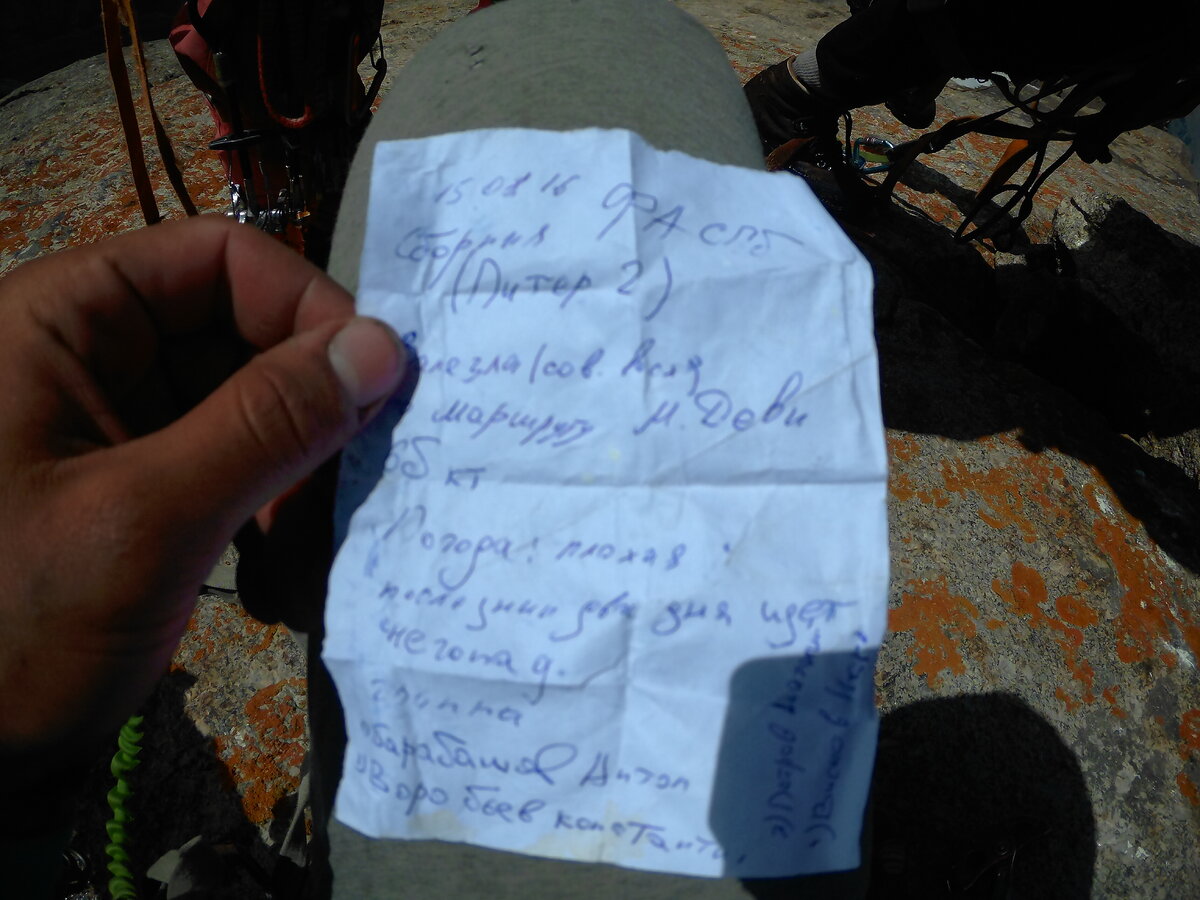 15 08 16 ФА СПб
Сборная
(Питер 2)
залезла/сов. восх
маршруту М. Деви
6Б кт
Погода: плохая:
последнии два дня идет
снегопад.
Группа
Барабашов Антон
Воробьев Константин